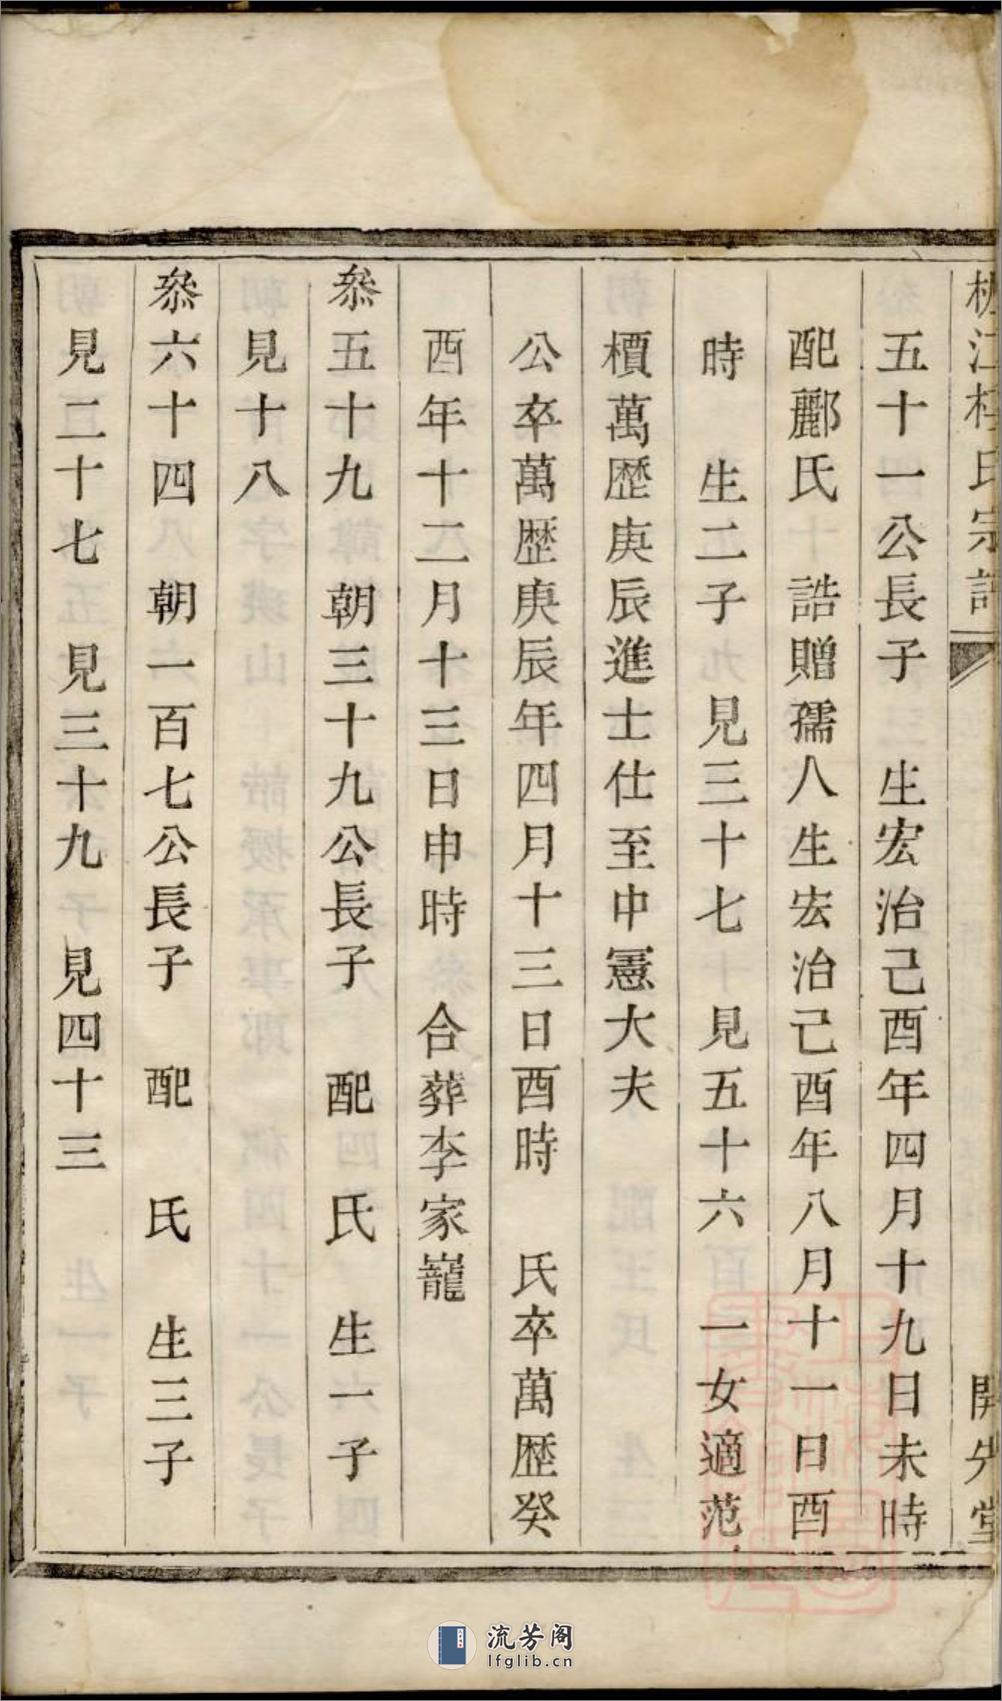 江 氏宗譜
開先堂
五十一公長子 生宏治己酉年四月十九日未時
配酈氏 誥贈孺人生宏治己酉年八月十一日酉
時 生二子 見三十七 見五十六 一女適范
檟萬歷庚辰進士仕至中憲大夫
公卒萬歷庚辰年四月十三日酉時 氏卒萬歷癸
酉年十二月十三日申時 合葬李家巃
叅五十九 朝三十九公長子 配 氏 生一子
見十八
叅六十四 朝一百七公長子 配 氏 生三子
見二十七 見三十九 見四十三
流芳阁
lfglib.cn